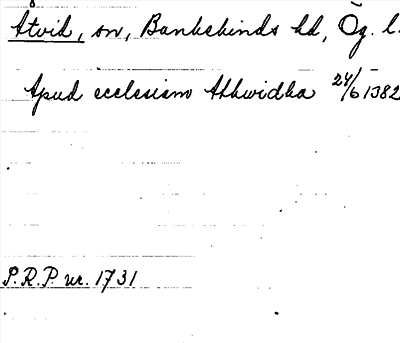 Åtvid, sn, Bankekinds hd, Ög. l.
Apud ecclesiam Athwidha 24/6 1382
S.R.P. nr. 1731